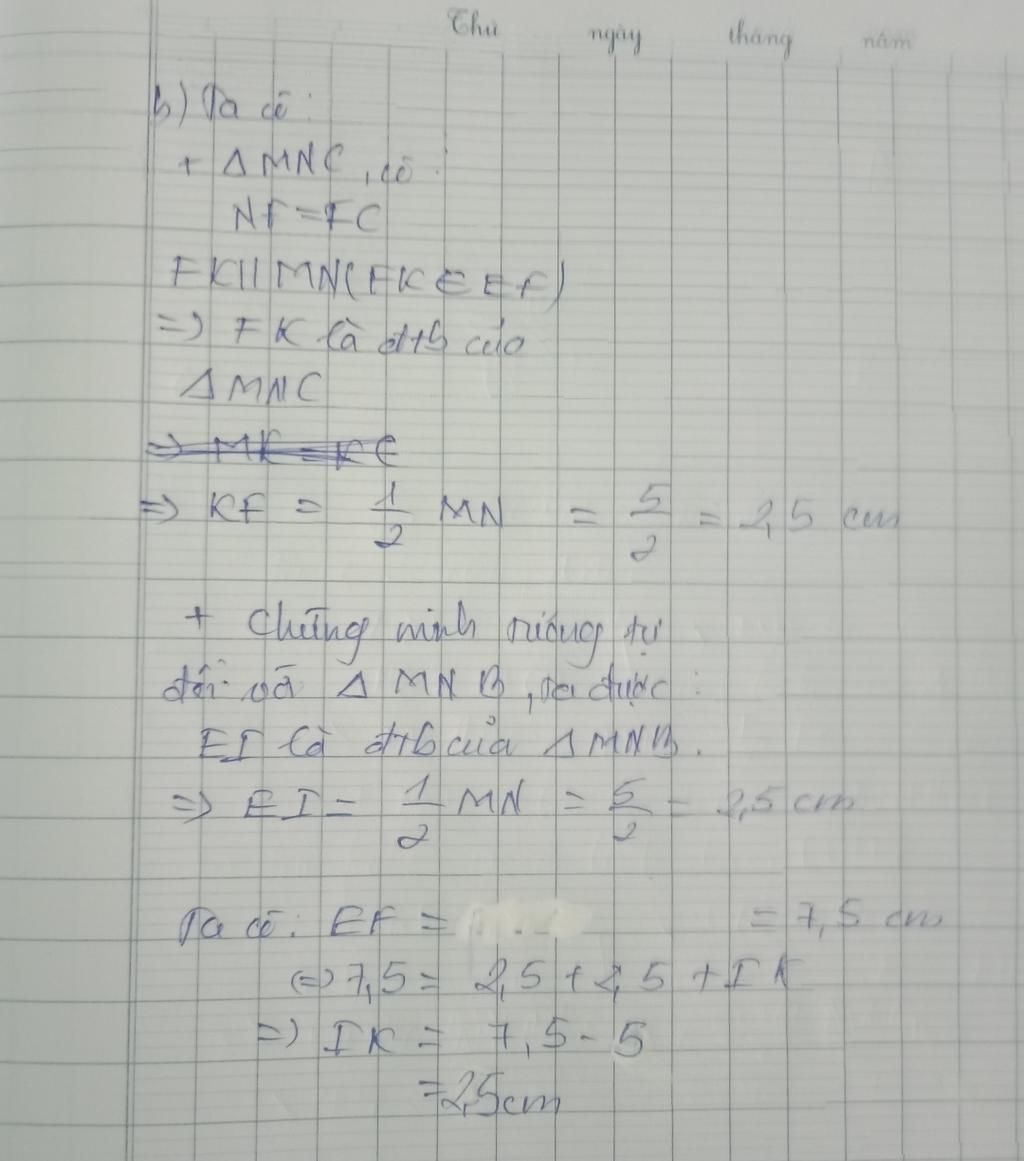 Thứ ngày tháng năm
b) Ta có:
+ Δ MNC, có:
NF = FC
FK || MN (FK ∈ EF)
=> FK là đtb của
Δ MNC
=> KF = 1/2 MN = 5/2 = 2,5 cm
+ Chứng minh tương tự
đối với Δ MNB, ta được:
EI là đtb của Δ MNB.
=> EI = 1/2 MN = 5/2 = 2,5 cm
Ta có: EF = = 7,5 cm
<=> 7,5 = 2,5 + 2,5 + IK
=> IK = 7,5 - 5
= 2,5 cm